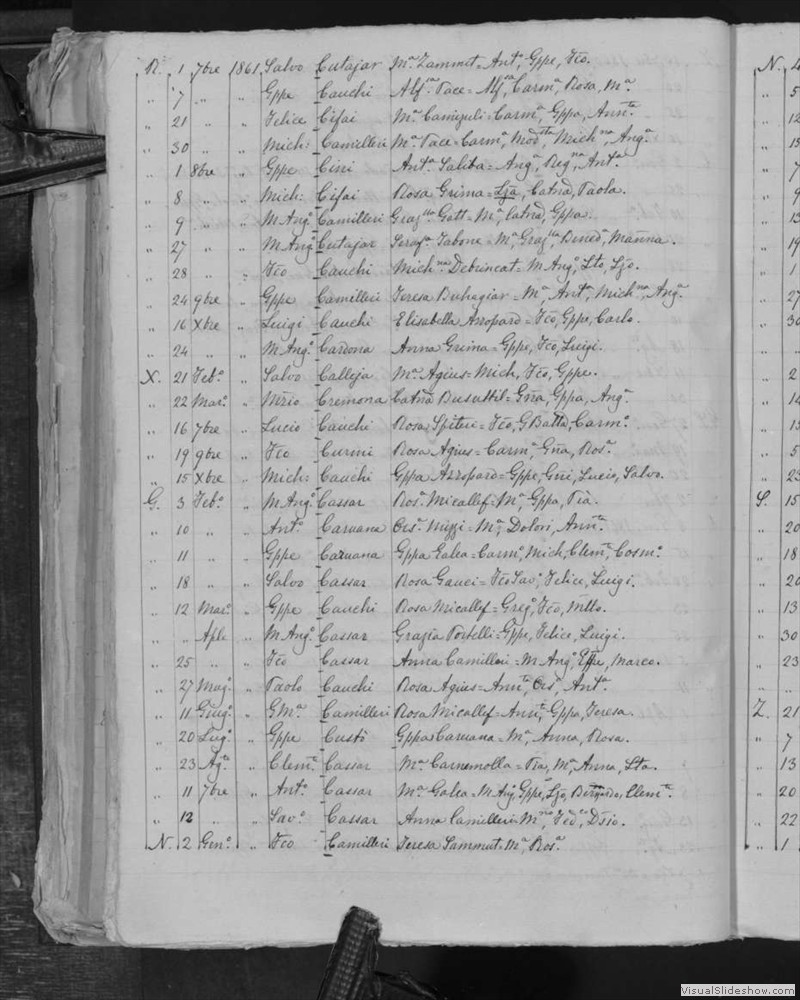 R. 1 7bre 1861 Salvo Cutajar Mª Zammit = Antº Gppe, Fco.
" 7 " " Gppe Cauchi Alfsa Pace = Alfsa, Carmª, Rosa, Mª
" 21 " " Felice Cifai Mª Camizuli = Carmª, Gppa, Annta
" 30 " " Mich: Camilleri Mª Pace = Carmª, Modsta, Michna, Angª
" 1 8bre " Gppe Cini Antª Saliba = Angª, Regna, Antª
" 8 " " Mich: Cifai Rosa Grima = Lza, Catna, Paola.
" 9 " " M Angº Camilleri Grazlla Gatt = Mª, Catna, Gppa.
" 27 " " M Angº Cutajar Serafª Tabone = Mª, Grazlla, Bened, Marina.
" 28 " " Fco Cauchi Michna Debrincat = M Angº, Sto, Lzo.
" 24 9bre " Gppe Camilleri Teresa Buhagiar = Mª, Antª, Michna, Angª
" 16 Xbre " Luigi Cauchi Elisabella Azzopard = Fco, Gppe, Carlo.
" 24 " " M Angº Cardona Anna Grima = Gppe, Fco, Luigi.
X. 21 Febº " Salvo Calleja Mª Agius = Mich, Fco, Gppe.
" 22 Marº " Cremona Catna Busuttil = Gña, Gppa, Angª
" 16 7bre " Lucio Cauchi Rosa Spiteri = Fco, GBatta, Carmº
" 19 9bre " Fco Curmi Rosa Agius = Carmª, Gña, Rosª
" 15 Xbre " Mich: Cauchi Gppa Azzopard = Gppe, Lucio, Salvo.
G. 3 Febº " M Angº Cassar Rosª Micallef = Mª, Gppa, Pia.
" 10 " " Antº Caruana Orsª Mizzi = Mª, Dolori, Annta
" 11 " " Gppe Caruana Gppa Galea = Carmº, Mich, Clemte, Cosmº
" 18 " " Salvo Cassar Rosa Gauci = Fco Savº, Felice, Luigi.
" 12 Marº " Gppe Cauchi Rosa Micallef = Gregº, Fco,
" " Aple " M Angº Cassar Grazia Portelli = Gppe, Felice, Luigi.
" 25 " " Fco Cassar Anna Camilleri = M Angº, Marco.
" 27 Magº " Paolo Cauchi Rosa Agius = Annta, Orsª, Antª
" 11 Giugº " GMª Camilleri Rosa Micallef = Annta, Gppa, Teresa.
" 20 Lugº " Gppe Custò Gppa Caruana = Mª, Anna, Rosa.
" 23 Agº " Clemte Cassar Mª Carnemolla = Pia, Mª Anna, Sta.
" 11 7bre " Antº Cassar Mª Galea = M Angº, Gppe, Lzo, Clemte
" 12 " " Savº Cassar Anna Camilleri = Dzio.
N. 2 Genº " Fco Camilleri Teresa Sammut = Mª, Rosª
N. 4
" 5
" 12
" 15
" 7
" 9
" 13
" 19
" 1
" 27
" 30
" "
" 2
" 14
" 13
" 5
" 23
S. 15
" 20
" 18
" 20
" 13
" 30
" 23
" "
Z. 21
" 7
" 13
" 20
" 22
" 1
VisualSlideshow.com